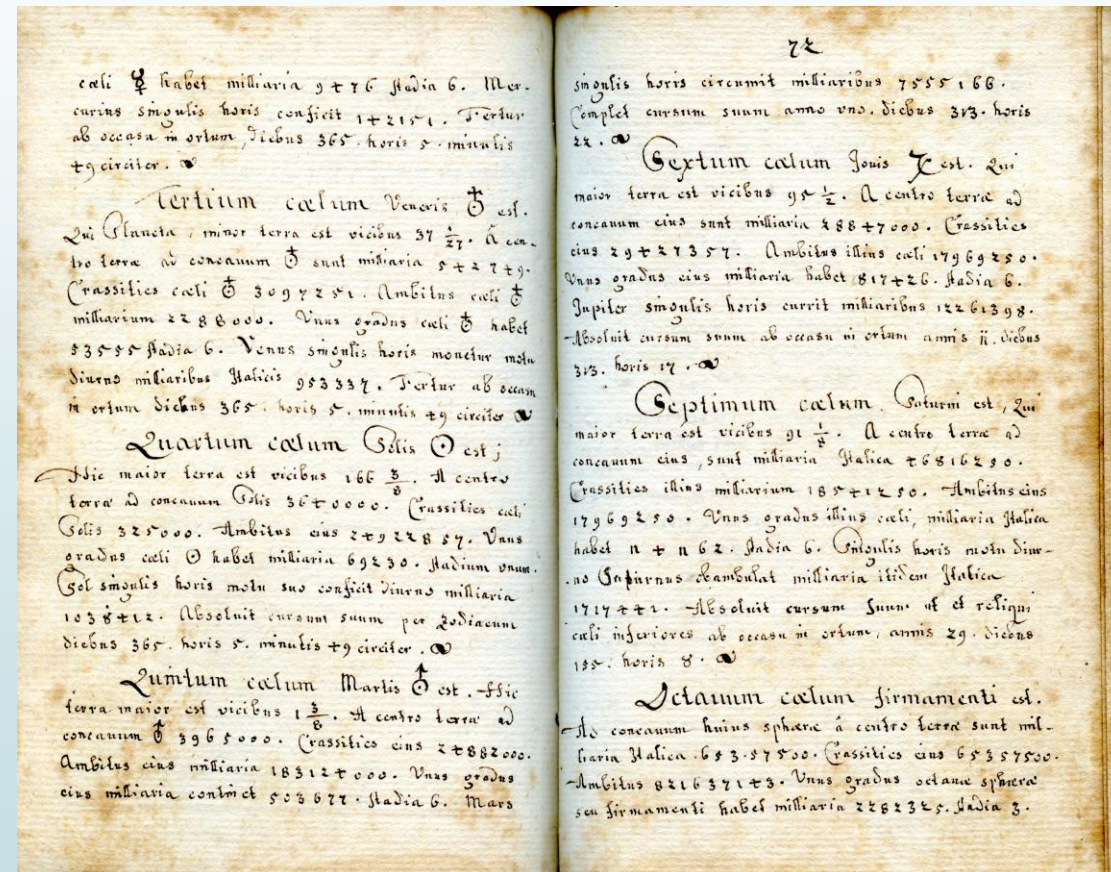 cœli ☿ habet milliaria 9476 stadia 6. Mer-
curius singulis horis conficit 142151. Fertur
ab occasu in ortum, diebus 365. horis 5. minutis
49 circiter.
Tertium cœlum Veneris ♁ est.
Qui Planeta, minor terra est vicibus 37 1/27. A cen-
tro terræ ad concauum ♁ sunt milliaria 542749.
Crassities cœli ♁ 3097251. Ambitus cœli ♁
milliarium 2288000. Vnus gradus cœli ♁ habet
53555 stadia 6. Venus singulis horis monetur motu
diurno milliaribus Italicis 953337. Fertur ab occasu
in ortum diebus 365. horis 5. minutis 49 circiter
Quartum cœlum Solis ☉ est;
Hic maior terra est vicibus 166 3/8. A centro
terræ ad concauum Solis 3640000. Crassities cœli
Solis 325000. Ambitus eius 24922857. Vnus
gradus cœli ☉ habet milliaria 69230. stadium vnum.
Sol singulis horis motu suo conficit diurno milliaria
1038412. Absoluit cursum suum per Zodiacum
diebus 365. horis 5. minutis 49 circiter.
Quintum cœlum Martis ♂ est. Hic
terra maior est vicibus 1 3/8. A centro terræ ad
concauum ♂ 3965000. Crassities eius 24882000.
Ambitus eius milliaria 183124000. Vnus gradus
eius milliaria continet 503677. stadia 6. Mars
72
singulis horis circumit milliaribus 7555166.
Complet cursum suum anno vno. diebus 313. horis
22.
Sextum cœlum Jouis ♃ est. Qui
maior terra est vicibus 95 1/2. A centro terræ ad
concauum eius sunt milliaria 28847000. Crassities
eius 29427357. Ambitus illius cœli 17969250.
Vnus gradus eius milliaria habet 817426. stadia 6.
Jupiter singulis horis currit milliaribus 12261398.
Absoluit cursum suum ab occasu in ortum annis 11. diebus
313. horis 17.
Septimum cœlum. Saturni est, Qui
maior terra est vicibus 91 1/8. A centro terræ ad
concauum eius, sunt milliaria Italica 46816250.
Crassities illius milliarium 18541250. Ambitus eius
17969250. Vnus gradus illius cœli, milliaria Italica
habet 11 4 11 62. stadia 6. Singulis horis motu diur-
no Saturnus obambulat milliaria itidem Italica
1717441. Absoluit cursum suum ut et reliqui
cœli inferiores ab occasu in ortum, annis 29. diebus
155. horis 8.
Octauum cœlum firmamenti est.
Ad concauum huius sphæræ â centro terræ sunt mil-
liaria Italica. 653.57500. Crassities eius 65357500.
Ambitus 821637143. Vnus gradus octauæ sphæræ
seu firmamenti habet milliaria 2282325. stadia 3.